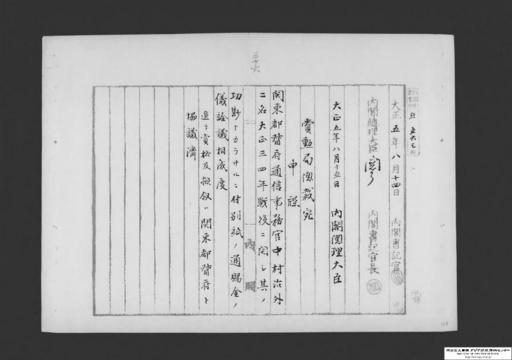 三十六
大正五年八月十四日
内閣書記官
内閣総理大臣
内閣書記官長
大正五年八月十五日
内閣総理大臣
賞勲局総裁宛
申牒
関東都督府通信事務官中村治外
二名大正三四年戦役ニ関シ其ノ
功勘ナカラサルニ付別紙ノ通賜金ノ
儀詮議相成度
追テ賞格及振叙ハ関東都督府ト
協議済